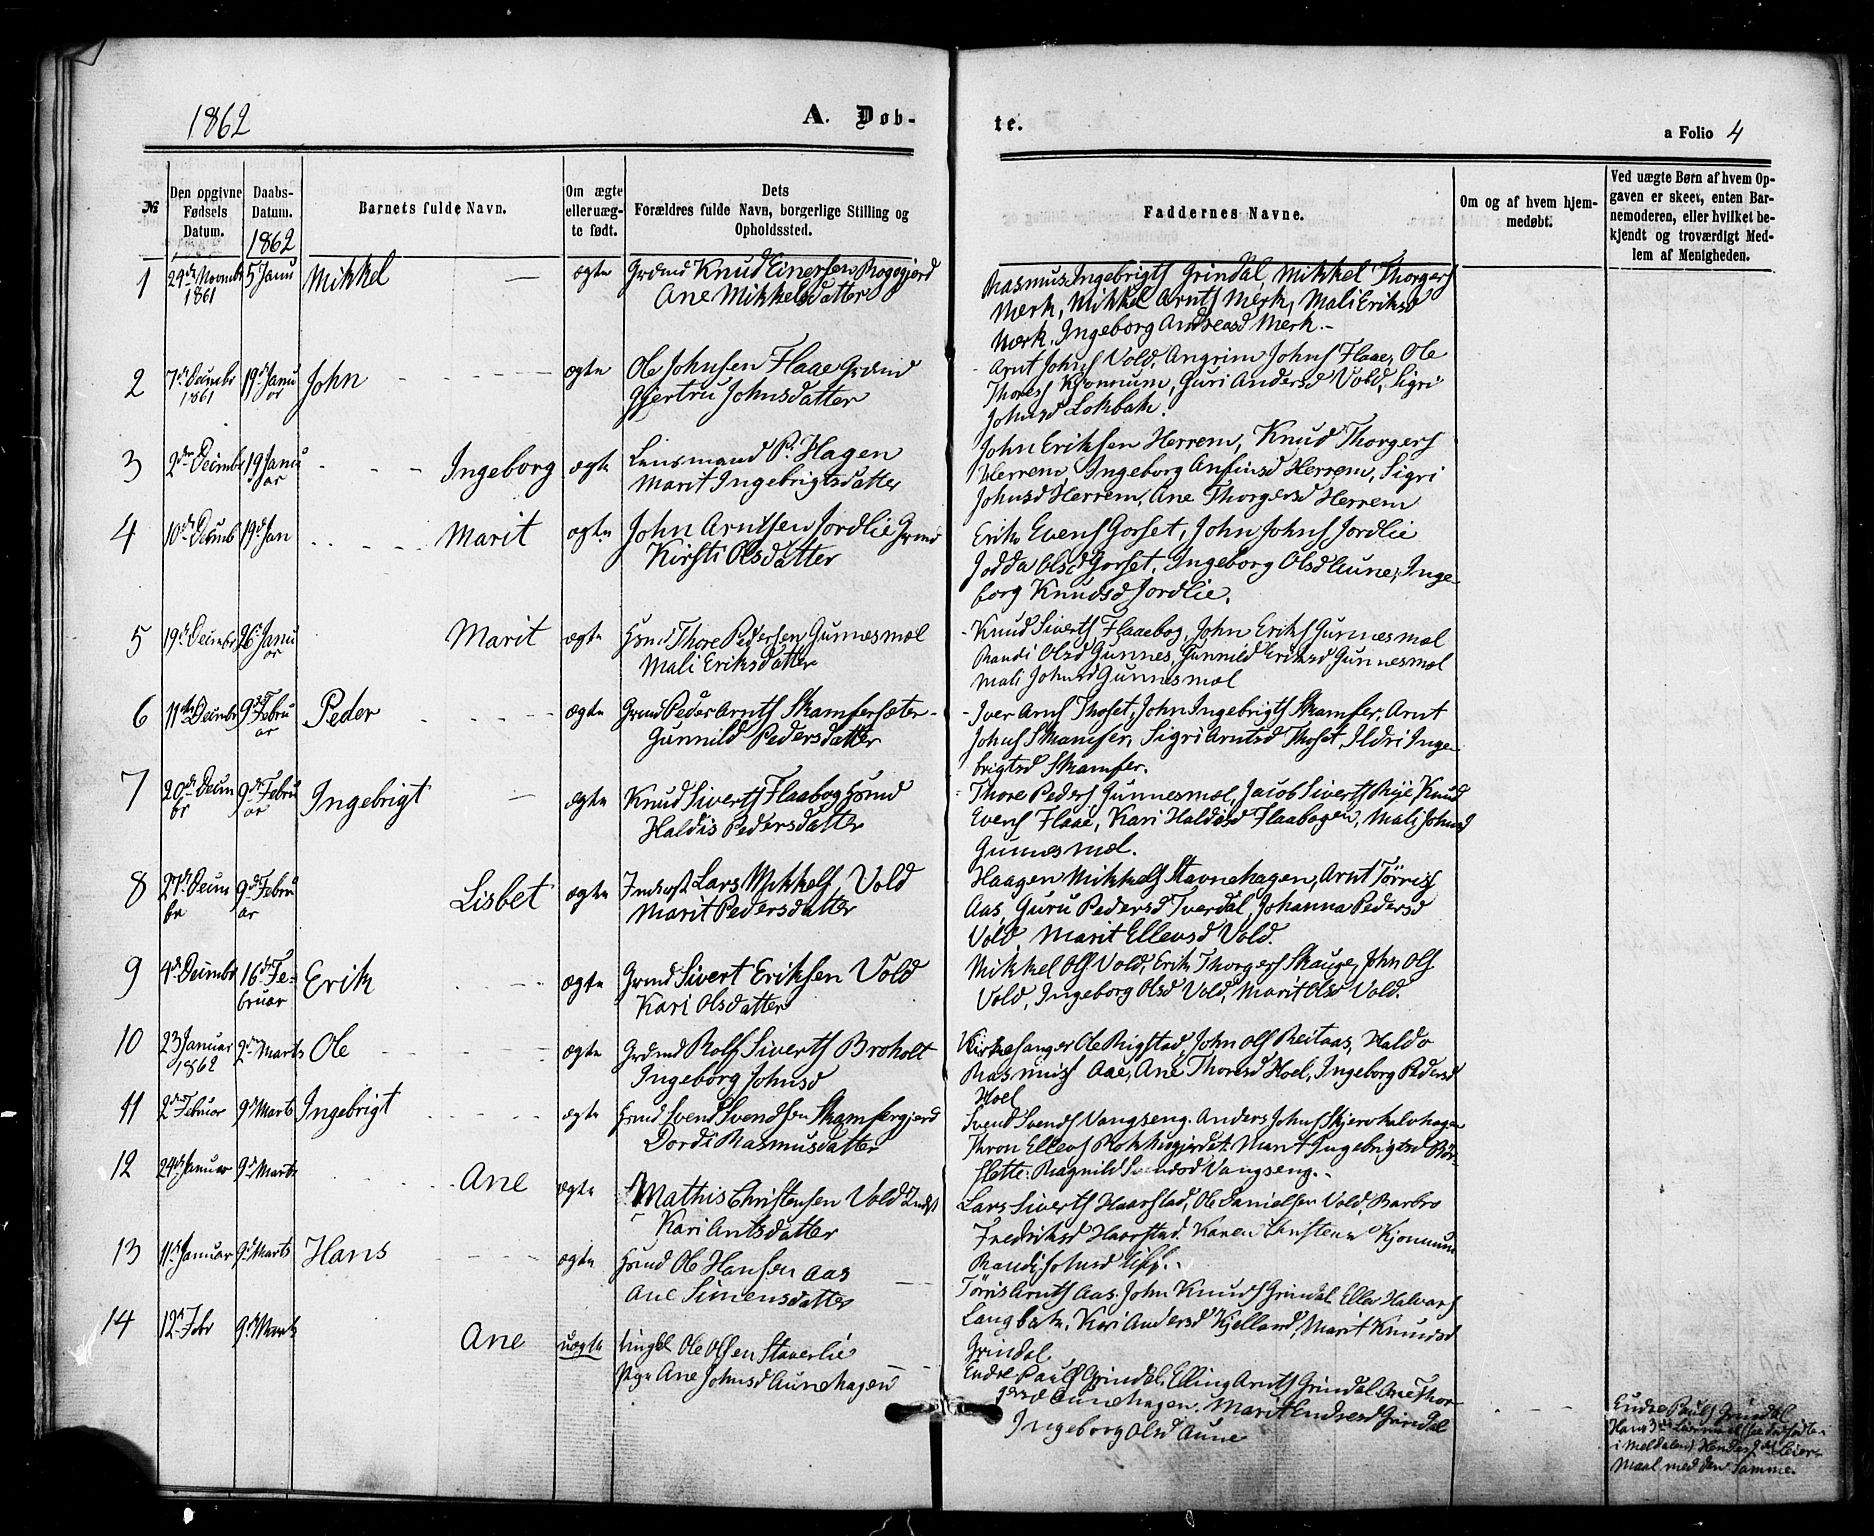 1862
A. Døb-
te.
a Folio 4
№
Den opgivne Fødsels Datum.
Daabs-Datum. 1862
Barnets fulde Navn.
Om ægte eller uæg-te født.
Dets Forældres fulde Navn, borgerlige Stilling og Opholdssted.
Faddernes Navne.
Om og af hvem hjem-medøbt.
Ved uægte Børn af hvem Op-gaven er skeet, enten Bar-nemoderen, eller hvilket be-kjendt og troværdigt Med-lem af Menigheden.
1 1861 5 Janu Mikkel ægte Grdmd Knud Einersen
Ane Mikkelsdatter
Rasmus Ingebrigts Grindal, Mikkel Thorgers
Merk, Mikkel Arnts Merk, Mali Eriksd
Merk, Ingeborg Andreasd Merk.
2 7de Decmbr 1861 19de Januar John ægte Ole Johnsen Flaae Grdmd
Gjertru Johnsdatter
Arnt Johns Vold, Angrim Johns Flaae, Ole
Thores Kjonnum, Guri Andersd Vold, Sigri
Johnsd
3 2den Decmbr 19 Januar Ingeborg ægte Lensmand P. Hagen
Marit Ingebrigtsdatter
John Eriksen Herrem, Knud Thorgers
Herrem, Ingeborg Anfinsd Herrem, Sigri
Johnsd Herrem, Ane Thorgersd Herrem
4 10de Decmb 19de Jan Marit ægte John Arntsen Jordlie Grmd
Kirsti Olsdatter
Erik Evens Gorset, John Johns Jordlie
Olsd Gorset, Ingeborg Olsd Aune, Inge-
borg Knudsd Jordlie.
5 19de Decmbr 26de Januar Marit ægte Hsmd Thore Pedersen Gunnesmæl
Mali Eriksdatter
Knud Siverts Flaabog, John Eriks Gunnesmæl
Randi Olsd Gunnes, Gunnild Eriksd Gunnesmæl
Mali Johnsd Gunnesmæl
6 11te Decmbr 9de Februar Peder ægte Grmd Peder Arnts Skamfersæter
Gunnild Pedersdatter
Iver Arns Thoset, John Ingebrigts Skamfer, Arnt
Johns Skamfer, Sigri Arntsd Thoset, Ildri Inge-
brigtsd Skamfer.
7 20de Decmbr 9de Februar Ingebrigt ægte Knud Siverts Flaabog Hsmd
Haldis Pedersdatter
Thore Peders Gunnesmæl, Jacob Siverts Rye, Knud
Evens Flaae, Kari Haldosd Flaabogen, Mali Johnsd
Gunnesmæl.
8 27de Decmbr 9de Februar Lisbet ægte Inderst Lars Mikkels Vold
Marit Pedersdatter
Haagen Mikkels Stavnehagen, Arnt Tørris
Aas, Guru Pedersd Tverdal, Johanna Pedersd
Vold, Marit Ellevsd Vold.
9 4de Decmbr 16de Februar Erik ægte Grmd Sivert Eriksen Vold
Kari Olsdatter
Mikkel Ols Vold, Erik Thorgers Skauge, John Ols
Vold, Ingeborg Olsd Vold, Marit Olsd Vold.
10 23 Januar 1862 2den Marts Ole ægte Grdmd Rolf Siverts Broholt
Ingeborg Johnsd
Kirkesanger Ole Rigstad, John Ols Reitaas, Haldo
Rasmus Aae, Ane Thoresd Hoel, Ingeborg Pedersd
Hoel
11 2den Febuor 9de Marts Ingebrigt ægte Hsmd Svend Svendsen Skamfergjerd
Dordi Rasmusdatter
Svend Svends Vangseng. Anders Johns
Thron Ellevs Marit Ingebrigtsd
flette. Ragnild Svendsd Vangseng.
12 24de Januar 9de Marts Ane ægte Mathis Christensen Vold Indst
Kari Antsdatter
Lars Siverts Haarstad, Ole Danielsen Vold, Barbro
Fredriksd Haarstad. Karen Kjonnum
Randi Johnsd
13 11te Januar 9de Marts Hans ægte Hsmd Ole Hansen Aas
Ane Simensdatter
Tørris Arnts Aas. John Knuds Grindal Ellev Halvars
Langbak, Kari Andersd Kjelland, Marit Knudsd
Grindal
14 12te Febr 9de Marts Ane uægte Ungkl Ole Olsen Staverlie
Pige Ane Johnsd Aunehagen
Endre Pauls Grindal, Elling Arnts Grindal, Ane Thor-
gersd Aunehagen. Marit Endresd Grindal
Ingeborg Olsd Aune
Endre Pauls Grindal
Hans
i Meldalen. Hendes Leier-
maal med den Samme.